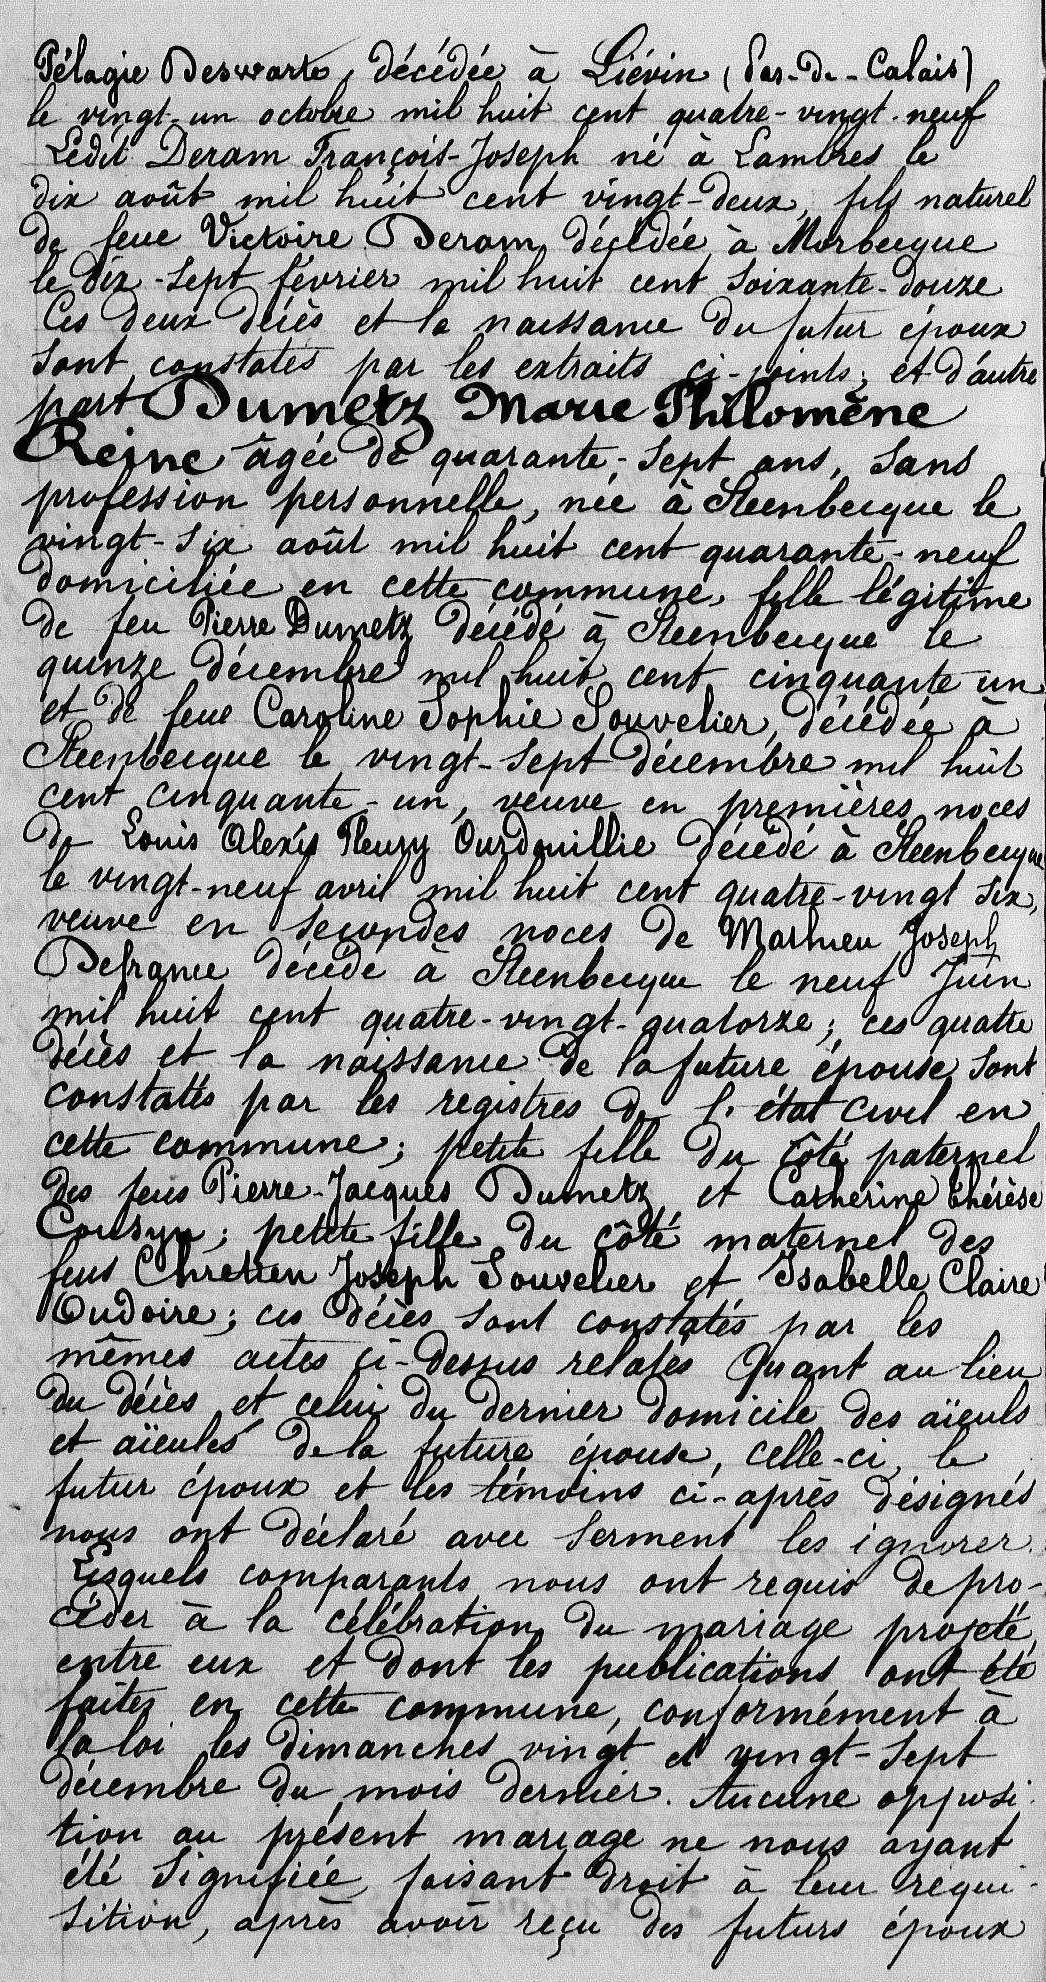 Pélagie Deswarte, décédée à Liévin (Pas-de-Calais)
le vingt-un octobre mil huit cent quatre-vingt-neuf
Ledit Deram François-Joseph né à Lambres le
dix août mil huit cent vingt-deux, fils naturel
de feue Victoire Deram, décédée à Morbecque
le dix-sept février mil huit cent soixante-douze
Ces deux décès et la naissance du futur époux
sont constatés par les extraits ci-joints; et d'autre
part Dumetz Marie Philomène
Reine âgée de quarante-sept ans, sans
profession personnelle, née à Steenbecque le
vingt-six août mil huit cent quarante-neuf
domiciliée en cette commune, fille légitime
de feu Pierre Dumetz décédé à Steenbecque le
quinze décembre mil huit cent cinquante un
et de feue Caroline Sophie Souvelier, décédée à
Steenbecque le vingt-sept décembre mil huit
cent cinquante-un, veuve en premières noces
de Louis Alexis Fleury Ourdouillie décédé à Steenbecque
le vingt-neuf avril mil huit cent quatre-vingt six,
veuve en secondes noces de Mathieu Joseph
Defrance décédé à Steenbecque le neuf Juin
mil huit cent quatre-vingt-quatorze; ces quatre
décès et la naissance de la future épouse sont
constatés par les registres de l'état civil en
cette commune; petite fille du côté paternel
des feus Pierre-Jacques Dumetz et Catherine Thérèse
Cousyn; petite fille du côté maternel des
feus Chretien Joseph Souvelier et Isabelle Claire
Oudoire; ces décès sont constatés par les
mêmes actes ci-dessus relatés Quant au lieu
du décès et celui du dernier domicile des aïeuls
et aïeules de la future épouse, celle-ci, le
futur époux et les témoins ci-après désignés
nous ont déclaré avec serment les ignorer.
Lesquels comparants nous ont requis de pro-
céder à la célébration du mariage projeté
entre eux et dont les publications ont été
faites en cette commune, conformément à
la loi les dimanches vingt et vingt-sept
décembre du mois dernier. Aucune opposi-
tion au présent mariage ne nous ayant
été signifiée, faisant droit à leur réqui-
sition, après avoir reçu des futurs époux